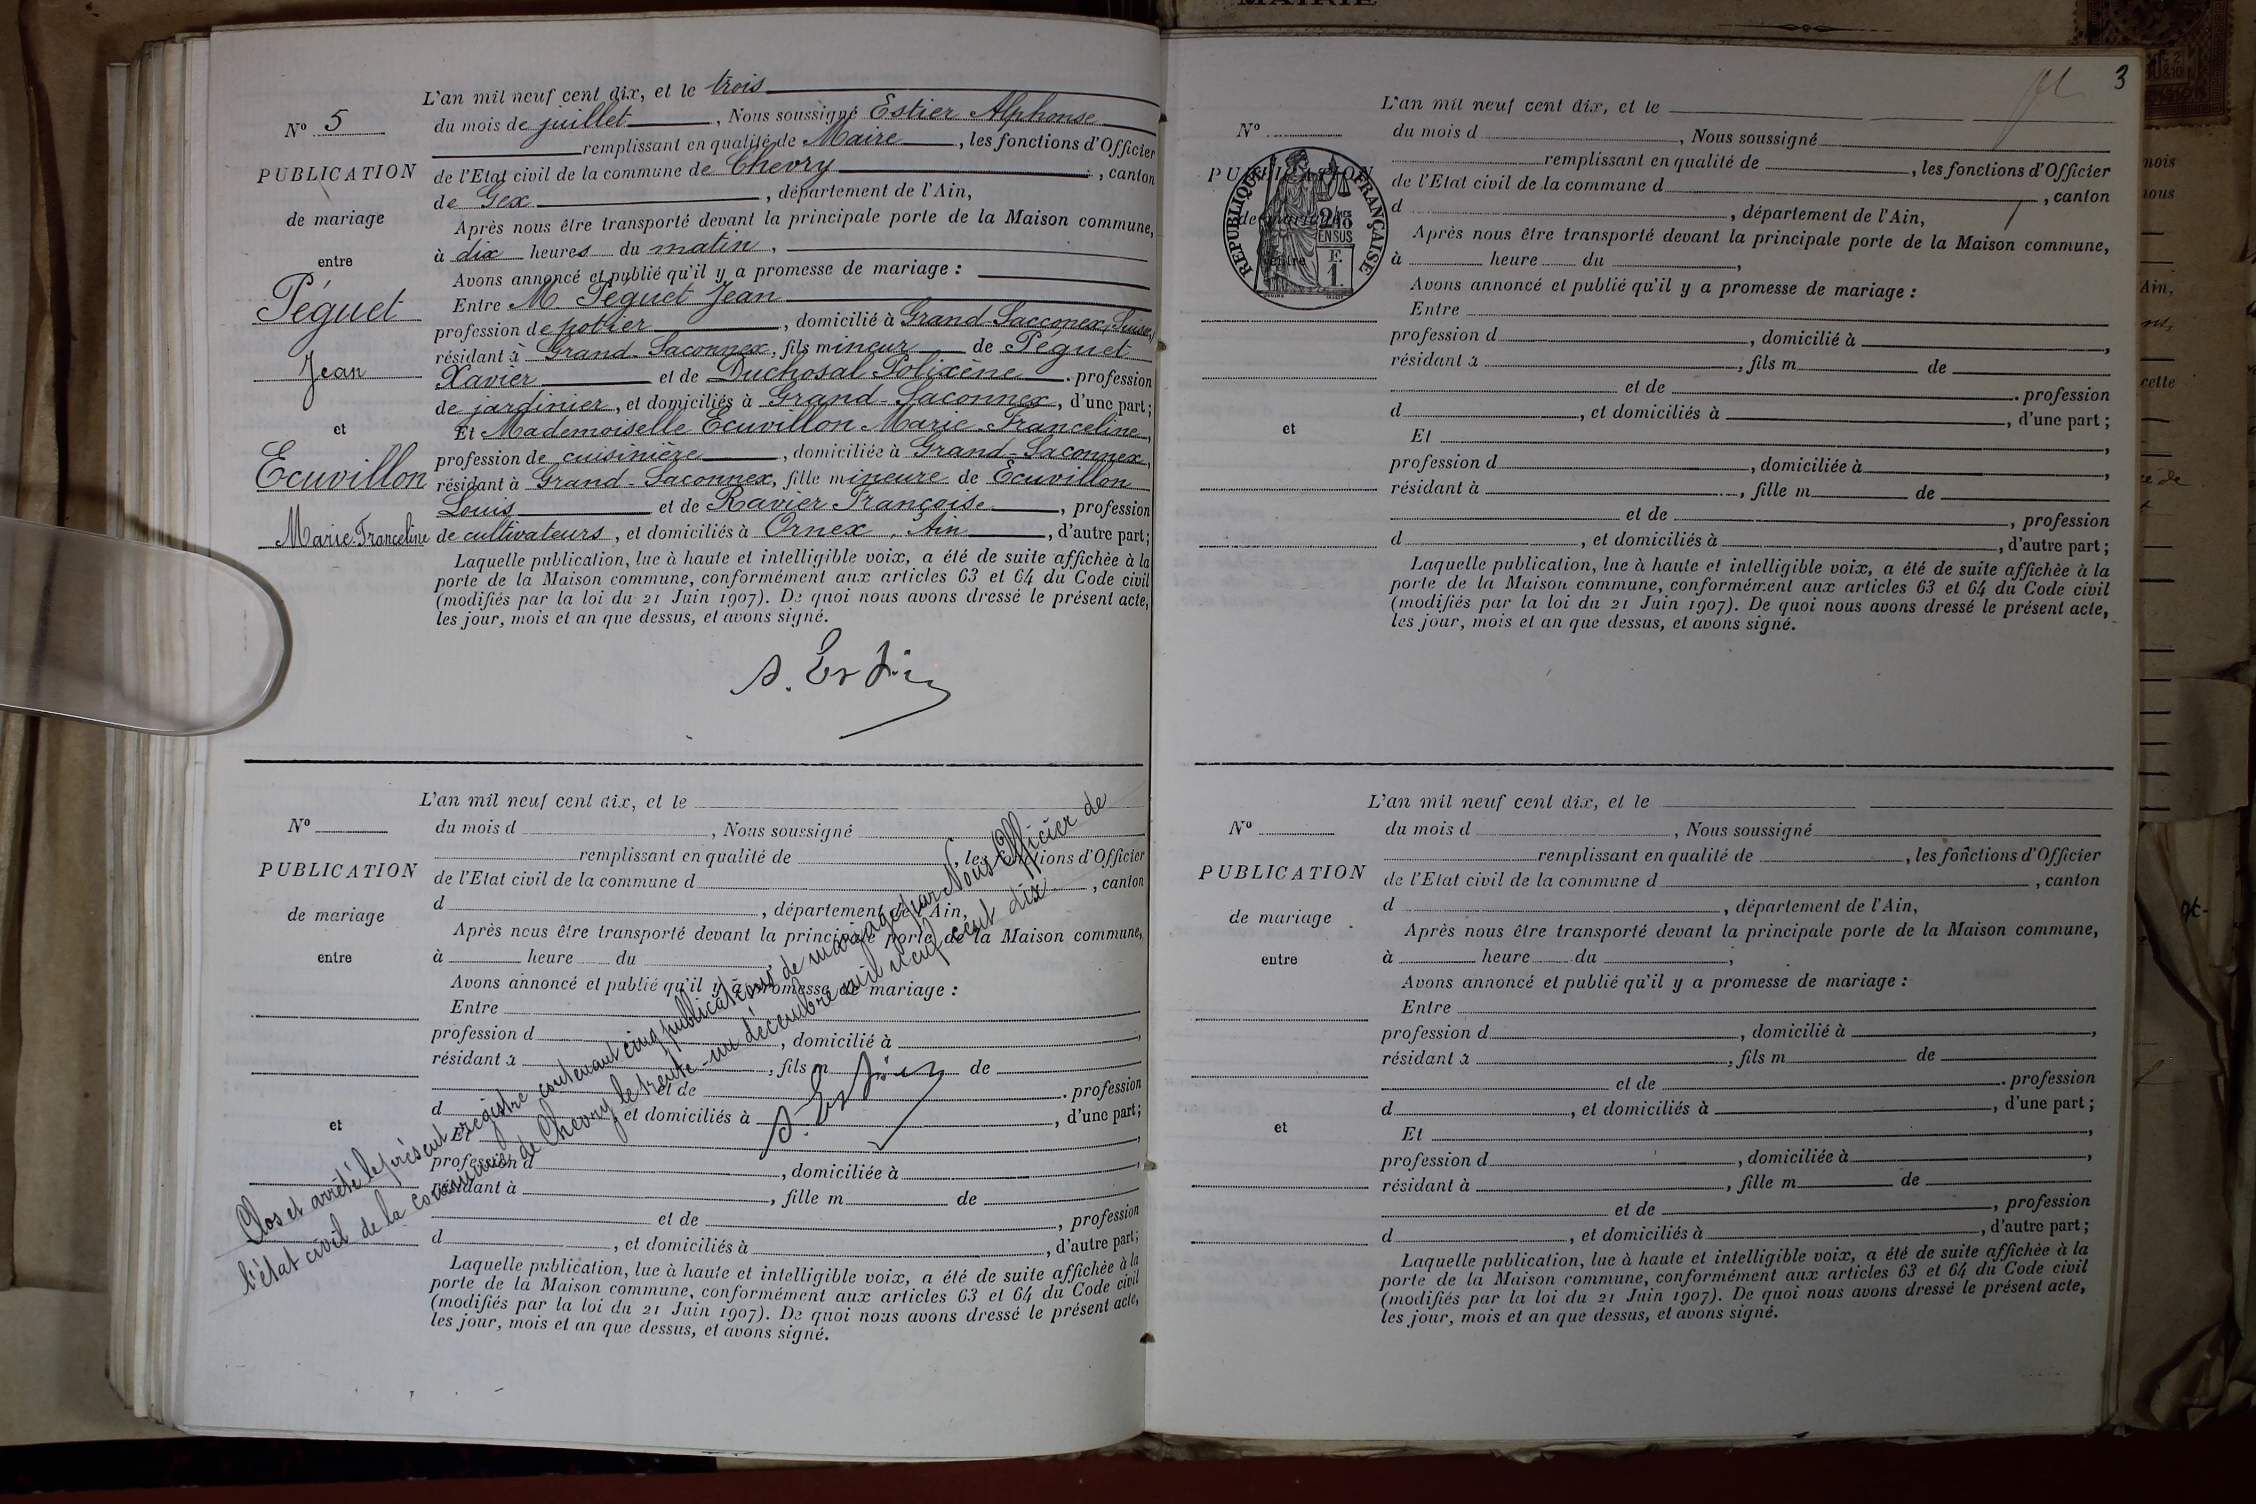 L'an mil neuf cent dix, et le trois
N° 5
du mois de juillet, Nous soussigné Estier Alphonse
remplissant en qualité de Maire, les fonctions d'Officier
PUBLICATION
de l'Etat civil de la commune de Chevry, canton
de Gex, département de l'Ain,
de mariage
Après nous être transporté devant la principale porte de la Maison commune,
à dix heures du matin,
entre
Avons annoncé et publié qu'il y a promesse de mariage :
Péguet
Entre M Péguet Jean
profession de, domicilié à Grand-Sacconex, Suisse,
résidant à Grand-Saconnex, fils mineur de Péguet
Jean
Xavier et de Duchosal Polixène, profession
de jardinier, et domiciliés à Grand-Saconnex, d'une part;
et
Et Mademoiselle Ecuvillon Marie-Franceline,
profession de cuisinière, domiciliée à Grand-Saconnex,
Ecuvillon
résidant à Grand-Saconnex, fille mineure de Ecuvillon
Louis et de Ravier Françoise, profession
Marie-Franceline
de cultivateurs, et domiciliés à Ornex, Ain, d'autre part;
Laquelle publication, lue à haute et intelligible voix, a été de suite affichée à la
porte de la Maison commune, conformément aux articles 63 et 64 du Code civil
(modifiés par la loi du 21 Juin 1907). De quoi nous avons dressé le présent acte,
les jour, mois et an que dessus, et avons signé.
A. Estier
L'an mil neuf cent dix, et le
N°
du mois d, Nous soussigné
remplissant en qualité de, les fonctions d'Officier
PUBLICATION
de l'Etat civil de la commune d, canton
d, département de l'Ain,
de mariage
Après nous être transporté devant la principale porte de la Maison commune,
à heure du
entre
Avons annoncé et publié qu'il y a promesse de mariage :
Entre
profession d, domicilié à
résidant à, fils m de
et de, profession
d, et domiciliés à, d'une part;
et
Et
profession d, domiciliée à
résidant à, fille m de
et de, profession
d, et domiciliés à, d'autre part;
Laquelle publication, lue à haute et intelligible voix, a été de suite affichée à la
porte de la Maison commune, conformément aux articles 63 et 64 du Code civil
(modifiés par la loi du 21 Juin 1907). De quoi nous avons dressé le présent acte,
les jour, mois et an que dessus, et avons signé.
Clos et arrêté le présent registre contenant cinq publications de mariage par Nous Officier de
l'état civil de la commune de Chevry le trente-un décembre mil neuf cent dix
A. Estier
MAIRIE
3
L'an mil neuf cent dix, et le
N°
du mois d, Nous soussigné
remplissant en qualité de, les fonctions d'Officier
PUBLICATION
de l'Etat civil de la commune d, canton
d, département de l'Ain,
de mariage
REPUBLIQUE FRANÇAISE
2/10
EN SUS
F.
1.
Après nous être transporté devant la principale porte de la Maison commune,
à heure du,
entre
Avons annoncé et publié qu'il y a promesse de mariage :
Entre
profession d, domicilié à,
résidant à, fils m de
et de, profession
d, et domiciliés à, d'une part;
et
Et,
profession d, domiciliée à,
résidant à, fille m de
et de, profession
d, et domiciliés à, d'autre part;
Laquelle publication, lue à haute et intelligible voix, a été de suite affichée à la
porte de la Maison commune, conformément aux articles 63 et 64 du Code civil
(modifiés par la loi du 21 Juin 1907). De quoi nous avons dressé le présent acte,
les jour, mois et an que dessus, et avons signé.
L'an mil neuf cent dix, et le
N°
du mois d, Nous soussigné
remplissant en qualité de, les fonctions d'Officier
PUBLICATION
de l'Etat civil de la commune d, canton
d, département de l'Ain,
de mariage
Après nous être transporté devant la principale porte de la Maison commune,
à heure du,
entre
Avons annoncé et publié qu'il y a promesse de mariage :
Entre
profession d, domicilié à,
résidant à, fils m de
et de, profession
d, et domiciliés à, d'une part;
et
Et,
profession d, domiciliée à,
résidant à, fille m de
et de, profession
d, et domiciliés à, d'autre part;
Laquelle publication, lue à haute et intelligible voix, a été de suite affichée à la
porte de la Maison commune, conformément aux articles 63 et 64 du Code civil
(modifiés par la loi du 21 Juin 1907). De quoi nous avons dressé le présent acte,
les jour, mois et an que dessus, et avons signé.